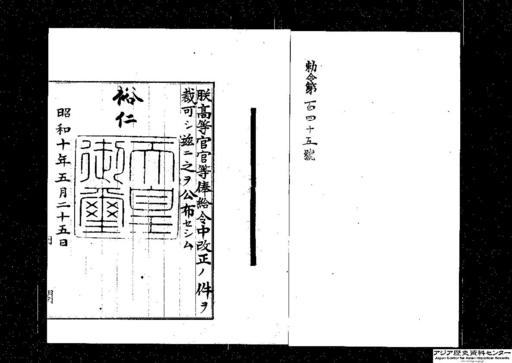 勅令第百四十五號
朕高等官官等俸給令中改正ノ件ヲ
裁可シ茲ニ之ヲ公布セシム
裕仁
天皇
御璽
昭和十年五月二十五日
アジア歴史資料センター
Japan Center for Asian Historical Records